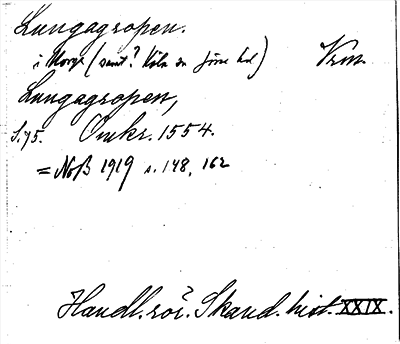 Lungagropen.
i Norge (samt? Köla sn Jösse hd) Vrm.
Lungagropen,
S.75. Omkr. 1554.
= NoB 1919 s. 148, 162
Handl. rör. Skand. hist. XXIX.